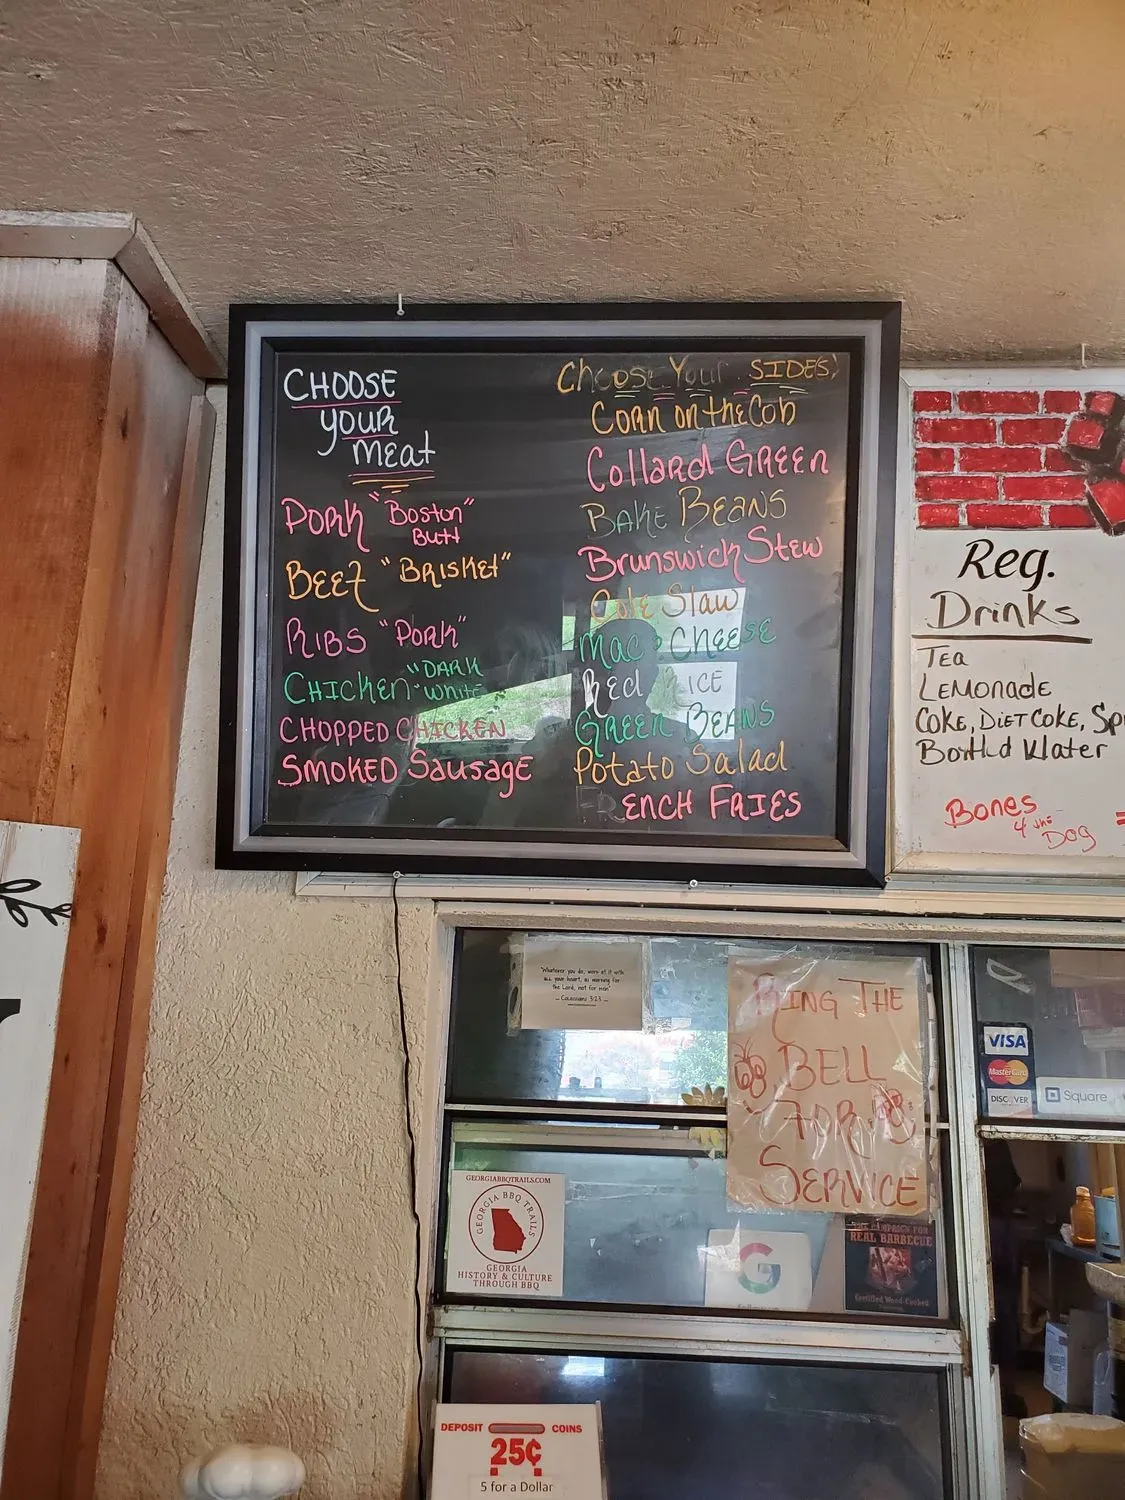 CHOOSE
YOUR
Meat
PORK "Boston"
Butt
BEEF "BRISKET"
RIBS "PORK"
CHICKEN "DARK
White
CHOPPED CHICKEN
SMOKED SausagE
Choose Your SIDE(S)
CORN ON the Cob
Collard GREEN
BAKE BEANS
Brunswick Stew
Cole Slaw
Mac & CHEESE
Red RICE
GREEN BEANS
Potato Salad
FRENCH FRIES
Reg.
Drinks
Tea
LEMONADE
COKE, DIET COKE, Sp
Bottled Water
Bones
4 the
Dog
"Whatever you do, work at it with
all your heart, as working for
the Lord, not for men"
— Colossians 3:23 —
RING THE
BELL
FOR
SERVICE
VISA
MasterCard
DISCOVER
Square
GEORGIABBQTRAILS.COM
GEORGIA BBQ TRAILS
GEORGIA
HISTORY & CULTURE
THROUGH BBQ
G
THE CAMPAIGN FOR
REAL BARBECUE
Certified Wood-Cooked
DEPOSIT COINS
25¢
5 for a Dollar